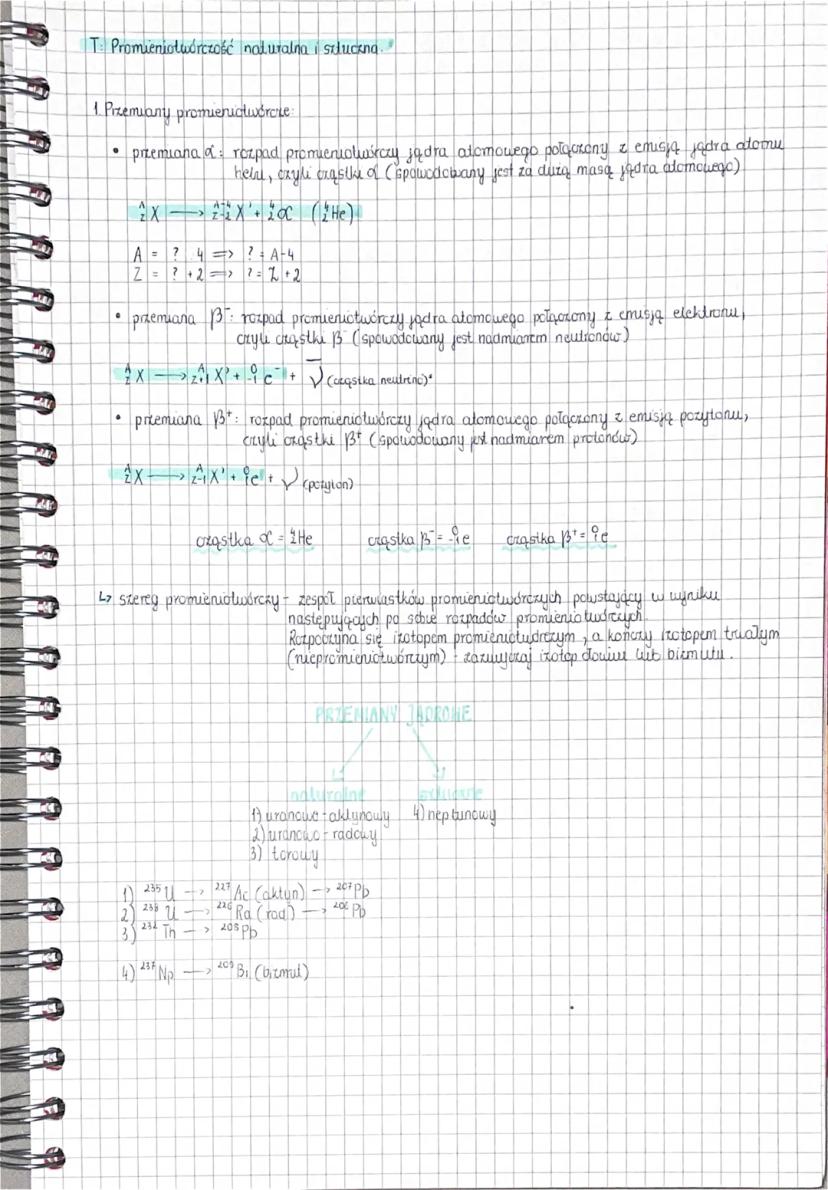 T: Promieniotwórczość naturalna i sztuczna.
1. Przemiany promieniotwórcze:
• przemiana α: rozpad promieniotwórczy jądra atomowego połączony z emisją jądra atomu
helu, czyli cząstki α (spowodowany jest za dużą masą jądra atomowego)
ᴬ_Z X ⟶ ᴬ⁻⁴_Z-2 X' + ⁴₂α (⁴₂He)
A = ? 4 => ? = A-4
Z = ? + 2 => ? = Z + 2
• przemiana β⁻: rozpad promieniotwórczy jądra atomowego połączony z emisją elektronu,
czyli cząstki β⁻ (spowodowany jest nadmiarem neutronów)
ᴬ_Z X ⟶ ᴬ_Z+1 X' + ⁰₋₁e⁻ + ν̅ (cząstka neutrino)
• przemiana β⁺: rozpad promieniotwórczy jądra atomowego połączony z emisją pozytonu,
czyli cząstki β⁺ (spowodowany jest nadmiarem protonów)
ᴬ_Z X ⟶ ᴬ_Z-1 X' + ⁰₁e + ν (pozyton)
cząstka α = ⁴₂He cząstka β⁻ = ⁰₋₁e cząstka β⁺ = ⁰₁e
↳ szereg promieniotwórczy - zespół pierwiastków promieniotwórczych powstający w wyniku
następujących po sobie rozpadów promieniotwórczych.
Rozpoczyna się izotopem promieniotwórczym, a kończy izotopem trwałym
(niepromieniotwórczym) - zazwyczaj izotop ołowiu lub bizmutu.
PRZEMIANY JĄDROWE
naturalne sztuczne
1) uranowo-aktynowy 4) neptunowy
2) uranowo-radowy
3) torowy
1) ²³⁵U ⟶ ²²⁷Ac (aktyn) ⟶ ²⁰⁷Pb
2) ²³⁸U ⟶ ²²⁶Ra (rad) ⟶ ²⁰⁶Pb
3) ²³²Th ⟶ ²⁰⁸Pb
4) ²³⁷Np ⟶ ²⁰⁹Bi (bizmut)